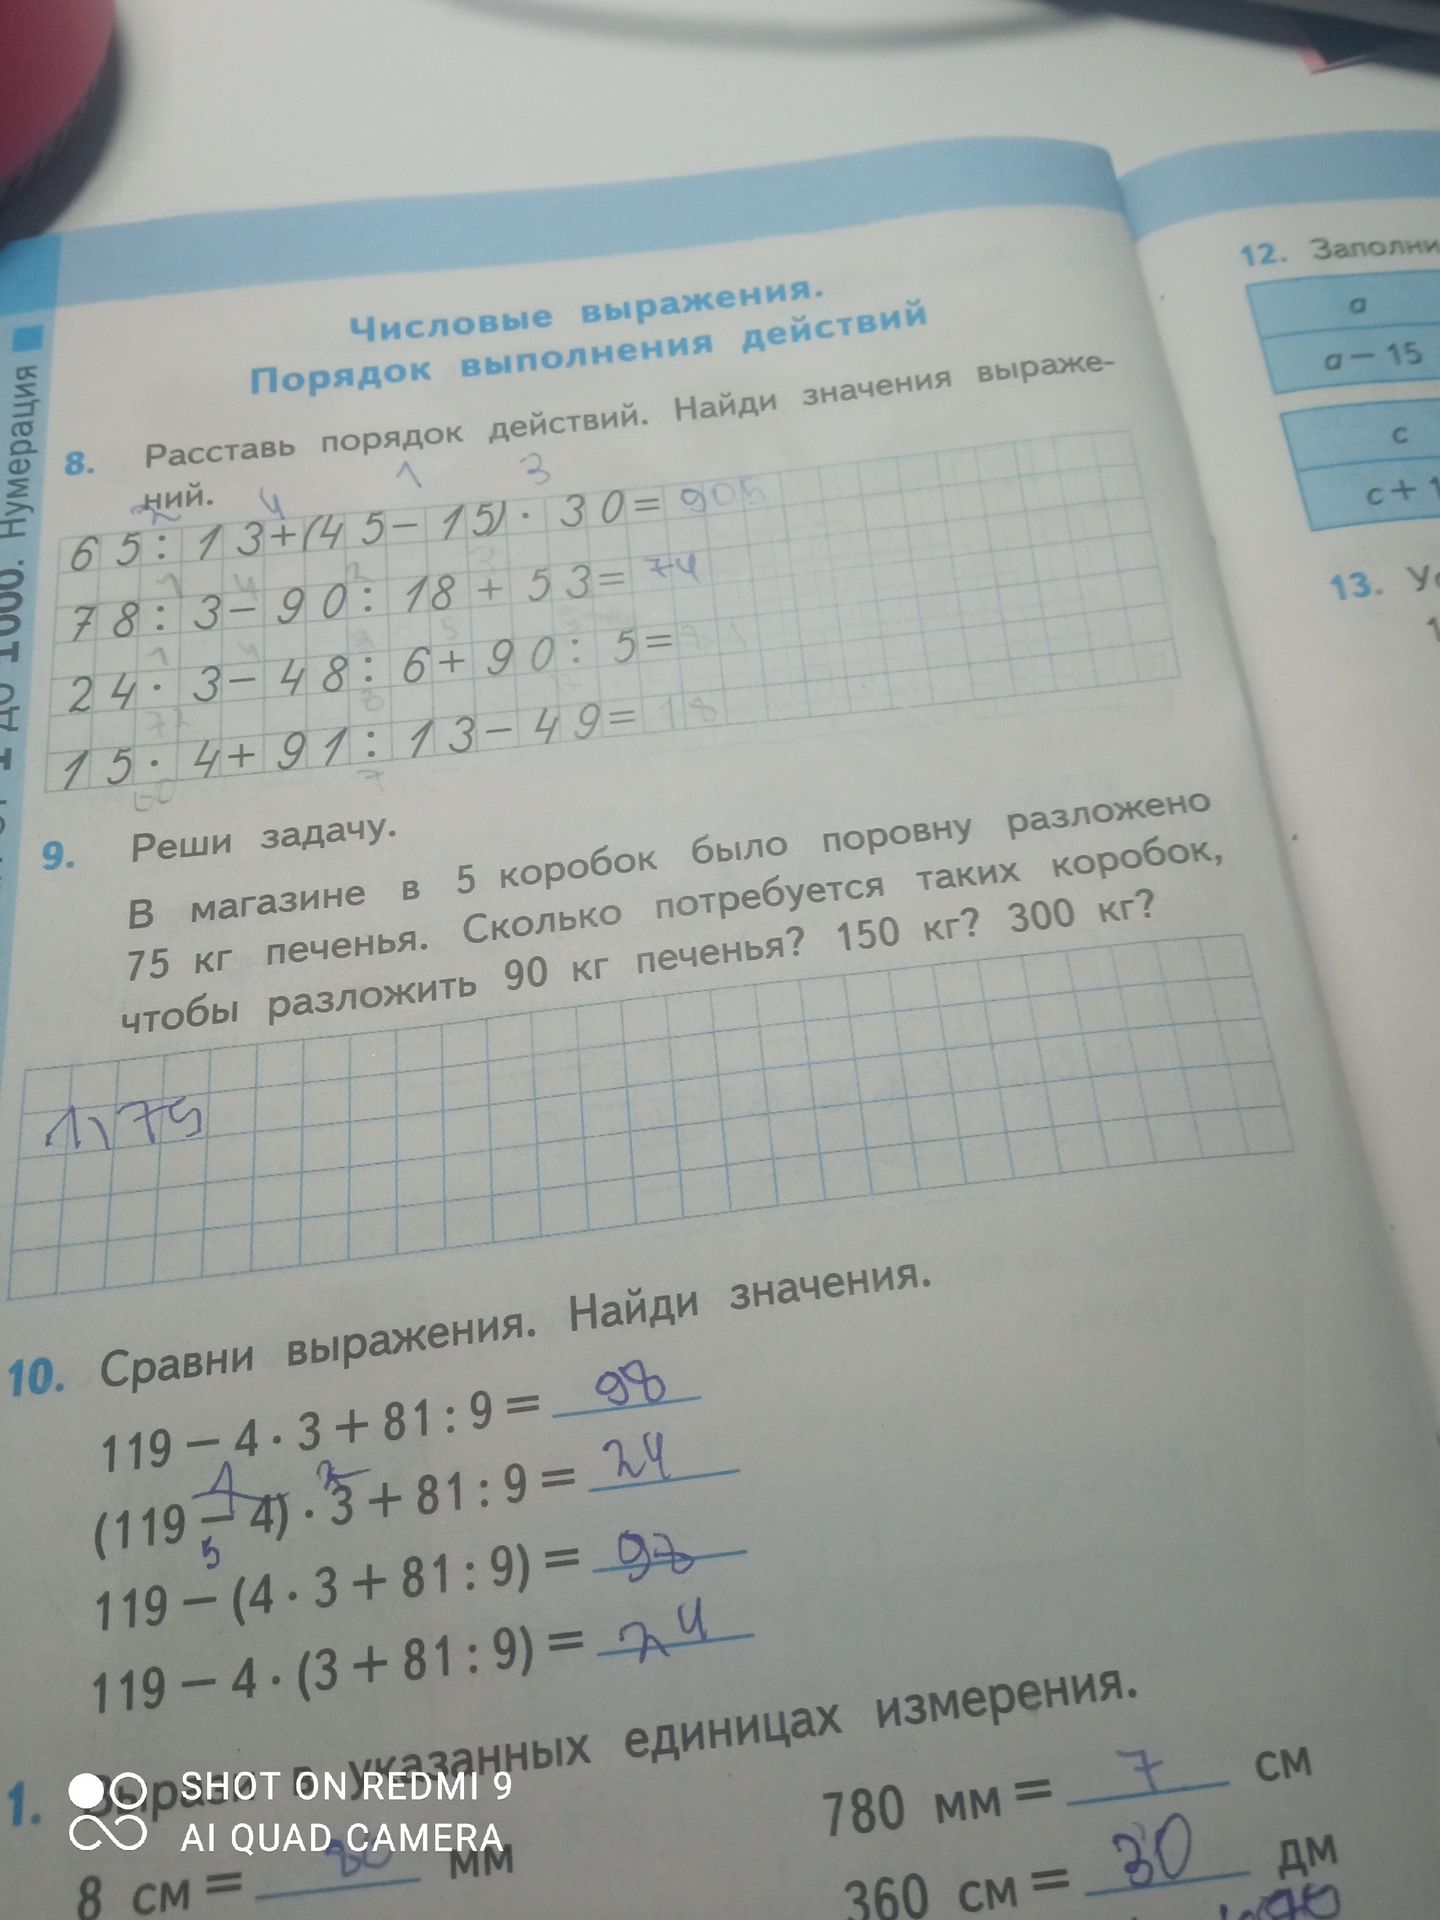 Числовые выражения.
Порядок выполнения действий
8. Расставь порядок действий. Найди значения выраже-
ний.
2 4 1 3
65 : 13 + (45 − 15) · 30 = 905
1 4 2 3
78 : 3 − 90 : 18 + 53 = 74
24 · 3 − 48 : 6 + 90 : 5 =
72 8
15 · 4 + 91 : 13 − 49 = 18
60 7
9. Реши задачу.
В магазине в 5 коробок было поровну разложено
75 кг печенья. Сколько потребуется таких коробок,
чтобы разложить 90 кг печенья? 150 кг? 300 кг?
1) 75
10. Сравни выражения. Найди значения.
119 − 4 · 3 + 81 : 9 = 98
(119 − 4) · 3 + 81 : 9 = 24
5
119 − (4 · 3 + 81 : 9) =
119 − 4 · (3 + 81 : 9) =
1. Вырази в указанных единицах измерения.
8 см = 80 мм
780 мм = 7 см
360 см = 30 дм
12. Заполни
a
a − 15
c
c + 1
13. Ус
1
1000. Нумерация
SHOT ON REDMI 9
AI QUAD CAMERA